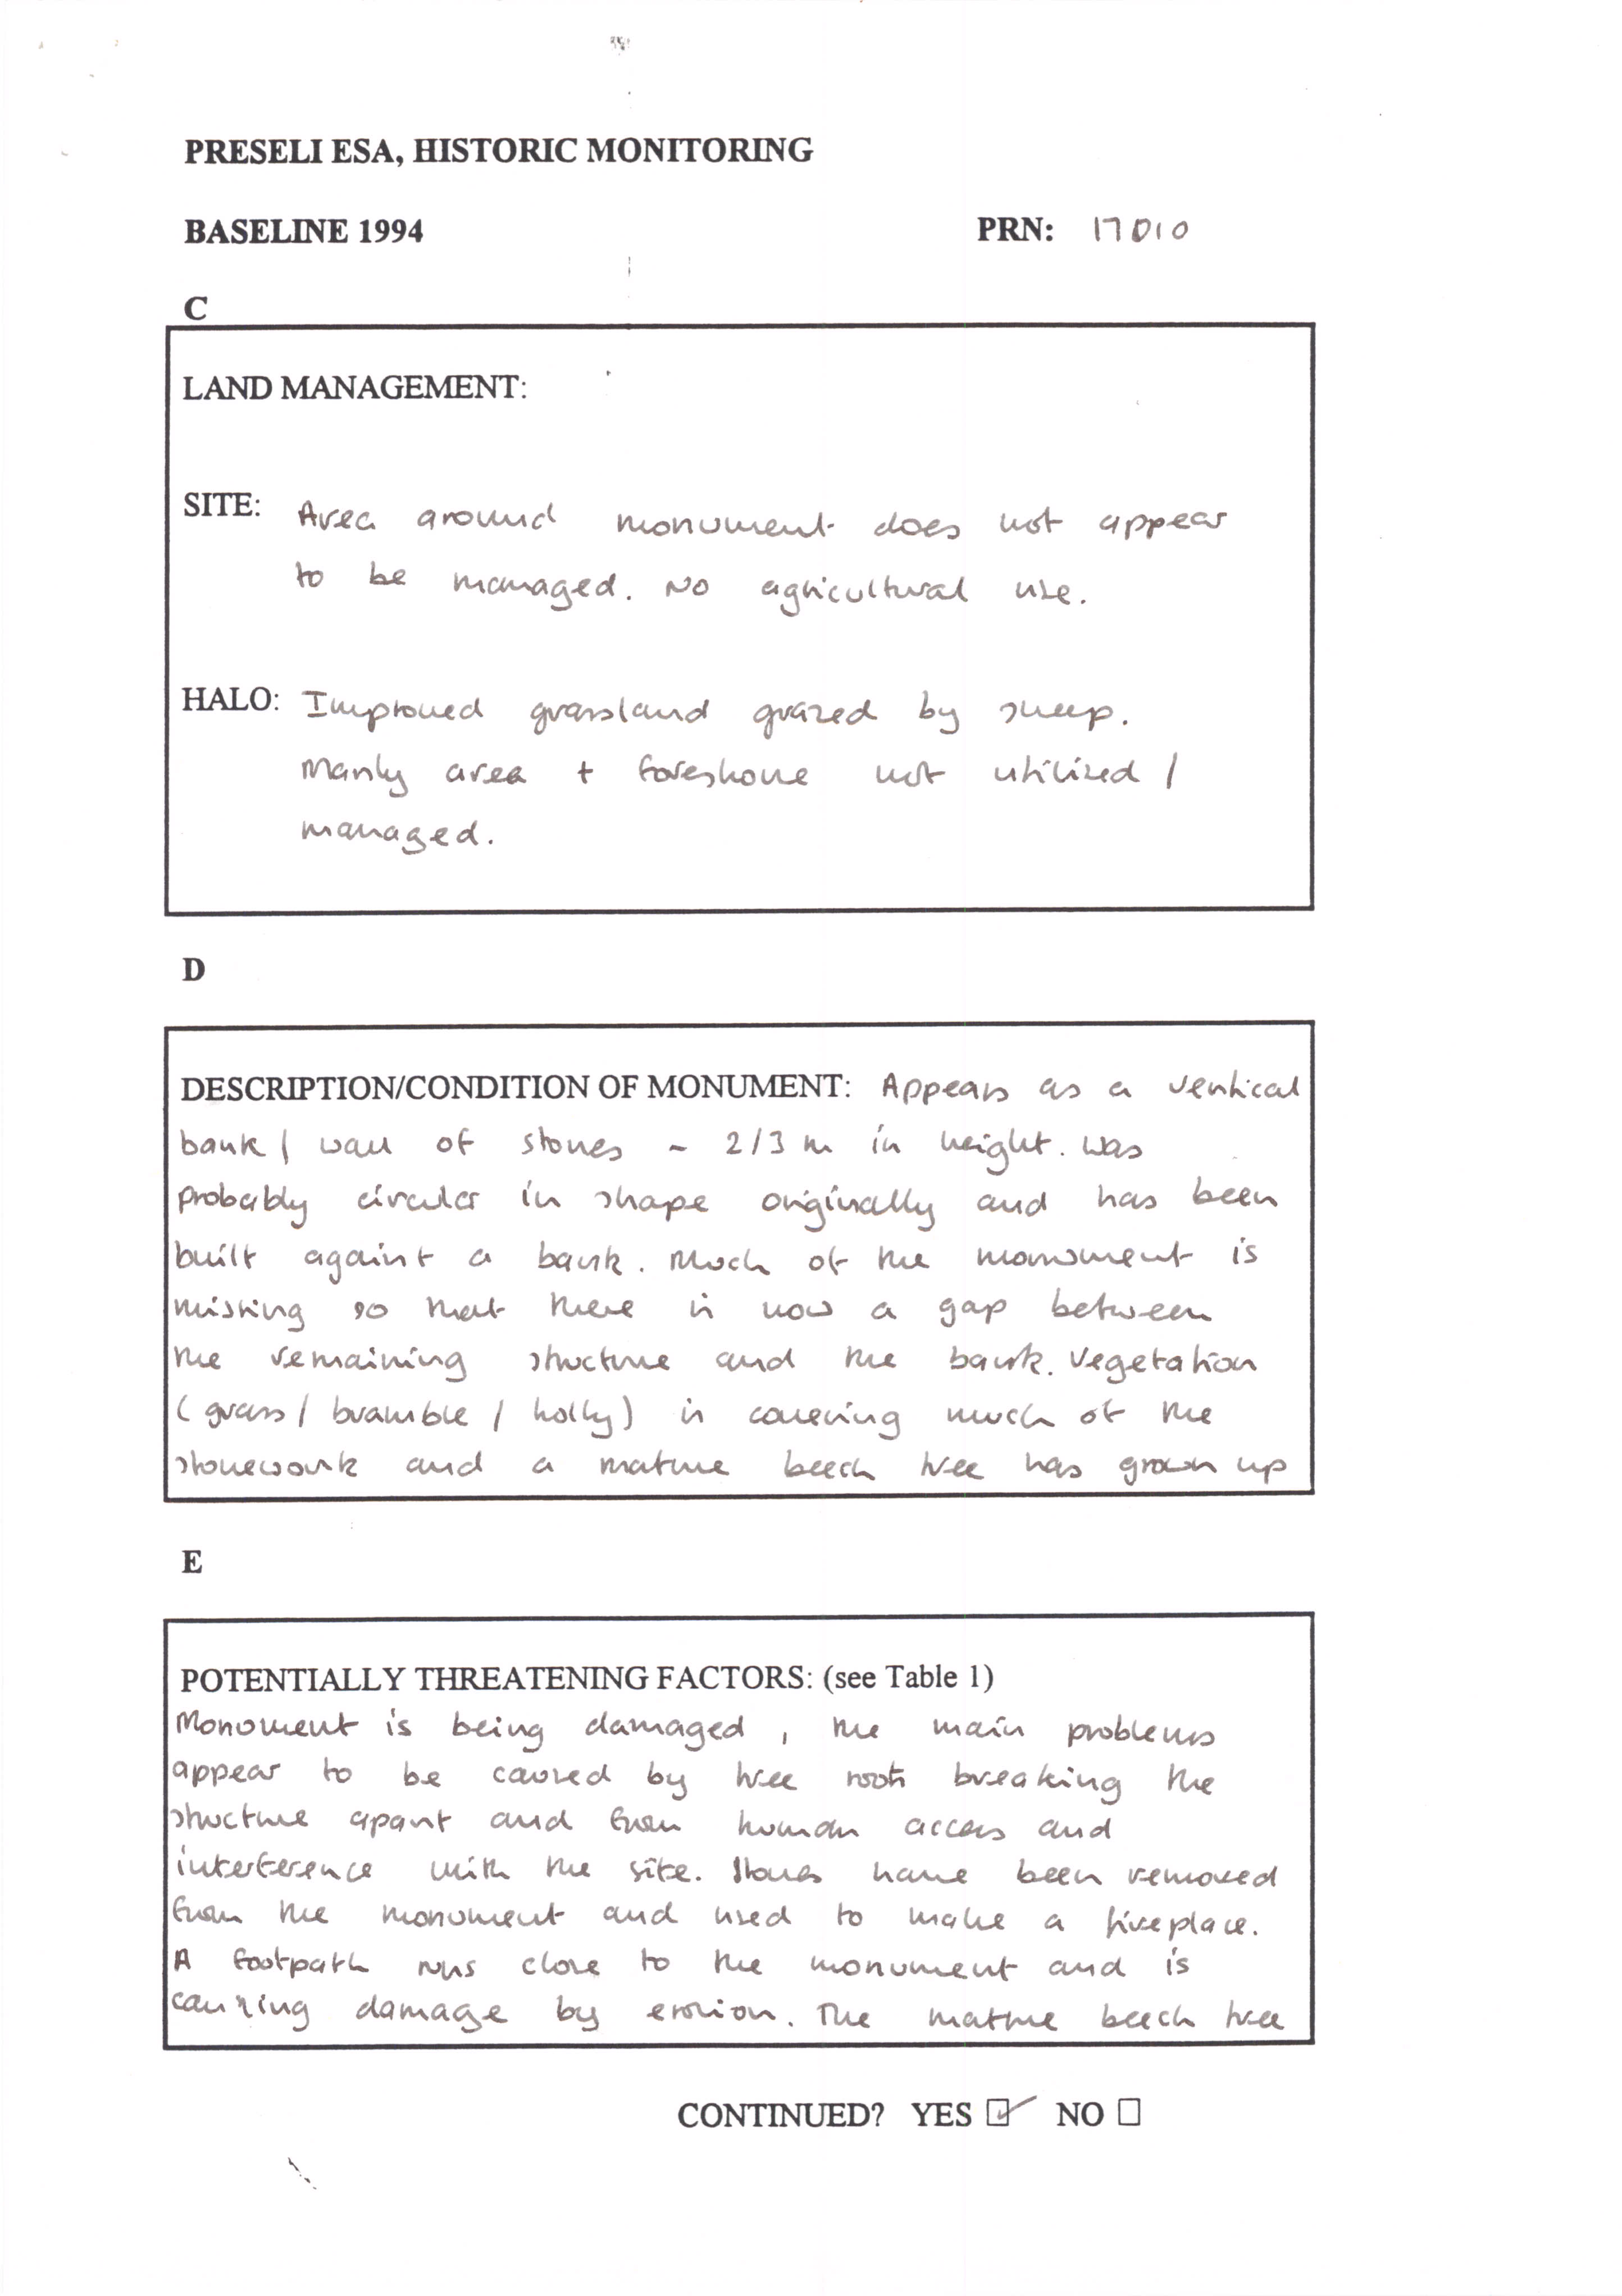 PRESELI ESA, HISTORIC MONITORING
BASELINE 1994 PRN: 17010
C
LAND MANAGEMENT:
SITE: Area around monument does not appear
to be managed. No agricultural use.
HALO: Improved grassland grazed by sheep.
Marshy area + foreshore not utilized /
managed.
D
DESCRIPTION/CONDITION OF MONUMENT: Appears as a vertical
bank / wall of stones ~ 2/3 m in height. Was
probably circular in shape originally and has been
built against a bank. Much of the monument is
missing so that there is now a gap between
the remaining structure and the bank. Vegetation
(grass / bramble / holly) is covering much of the
stonework and a mature beech tree has grown up
E
POTENTIALLY THREATENING FACTORS: (see Table 1)
Monument is being damaged, the main problems
appear to be caused by tree roots breaking the
structure apart and from human access and
interference with the site. Stones have been removed
from the monument and used to make a fireplace.
A footpath runs close to the monument and is
causing damage by erosion. The mature beech tree
CONTINUED? YES ☑ NO ☐